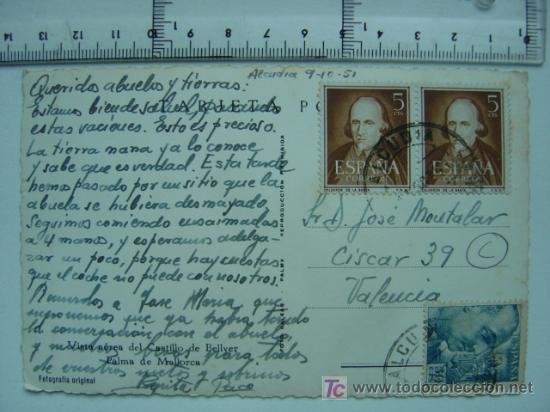 14 13 12 11 10 9 8 7 6 5 4 3 2 1
Alcudia 9-10-51
TARJETA PO
Queridos abuelos y tierras:
Estamos bien de salud,
estas vaciones. Esto es precioso.
La tierra nana ya lo conoce
y sabe que es verdad. Esta tarde
hemos pasado por un sitio que la
abuela se hubiera desmayado.
Seguimos comiendo ensaimadas
a 4 manos, y esperamos adelga-
zar un poco, porque hay cuestas
que el coche no puede con nosotros.
Recuerdos a Jose Maria que
suponemos que ya habra tenido
la conversación con el abuelo
y para todos
de vuestros nietos y sobrinos
Paco
Vista aérea del Castillo de Bellver
Palma de Mallorca
Fotografía original
REPRODUCCIÓN PROHIBIDA
PALMA
5 CTS
ESPAÑA
CORREOS
CALDERON DE LA BARCA
5 CTS
ESPAÑA
CORREOS
CALDERON DE LA BARCA
ALCUDIA
Sr. D. Jose Montalar
Ciscar 39 C
Valencia
ALCUDIA
todocoleccion